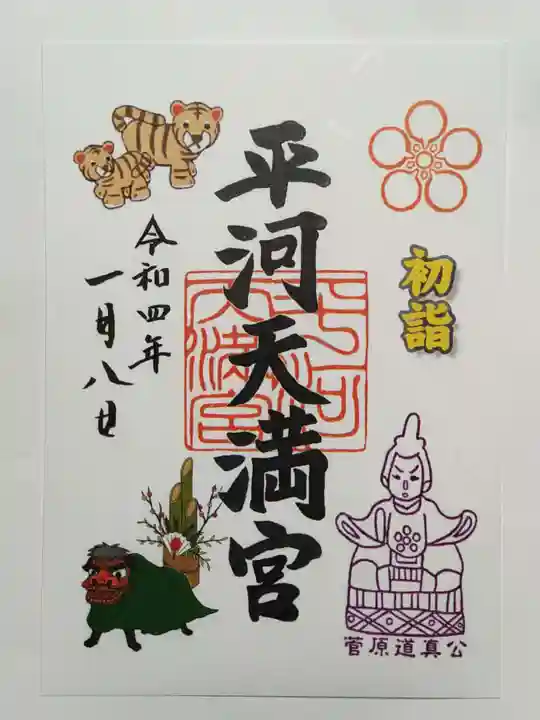 初詣
菅原道真公
平河天満宮
平河
天満宮
令和四年
一月八日